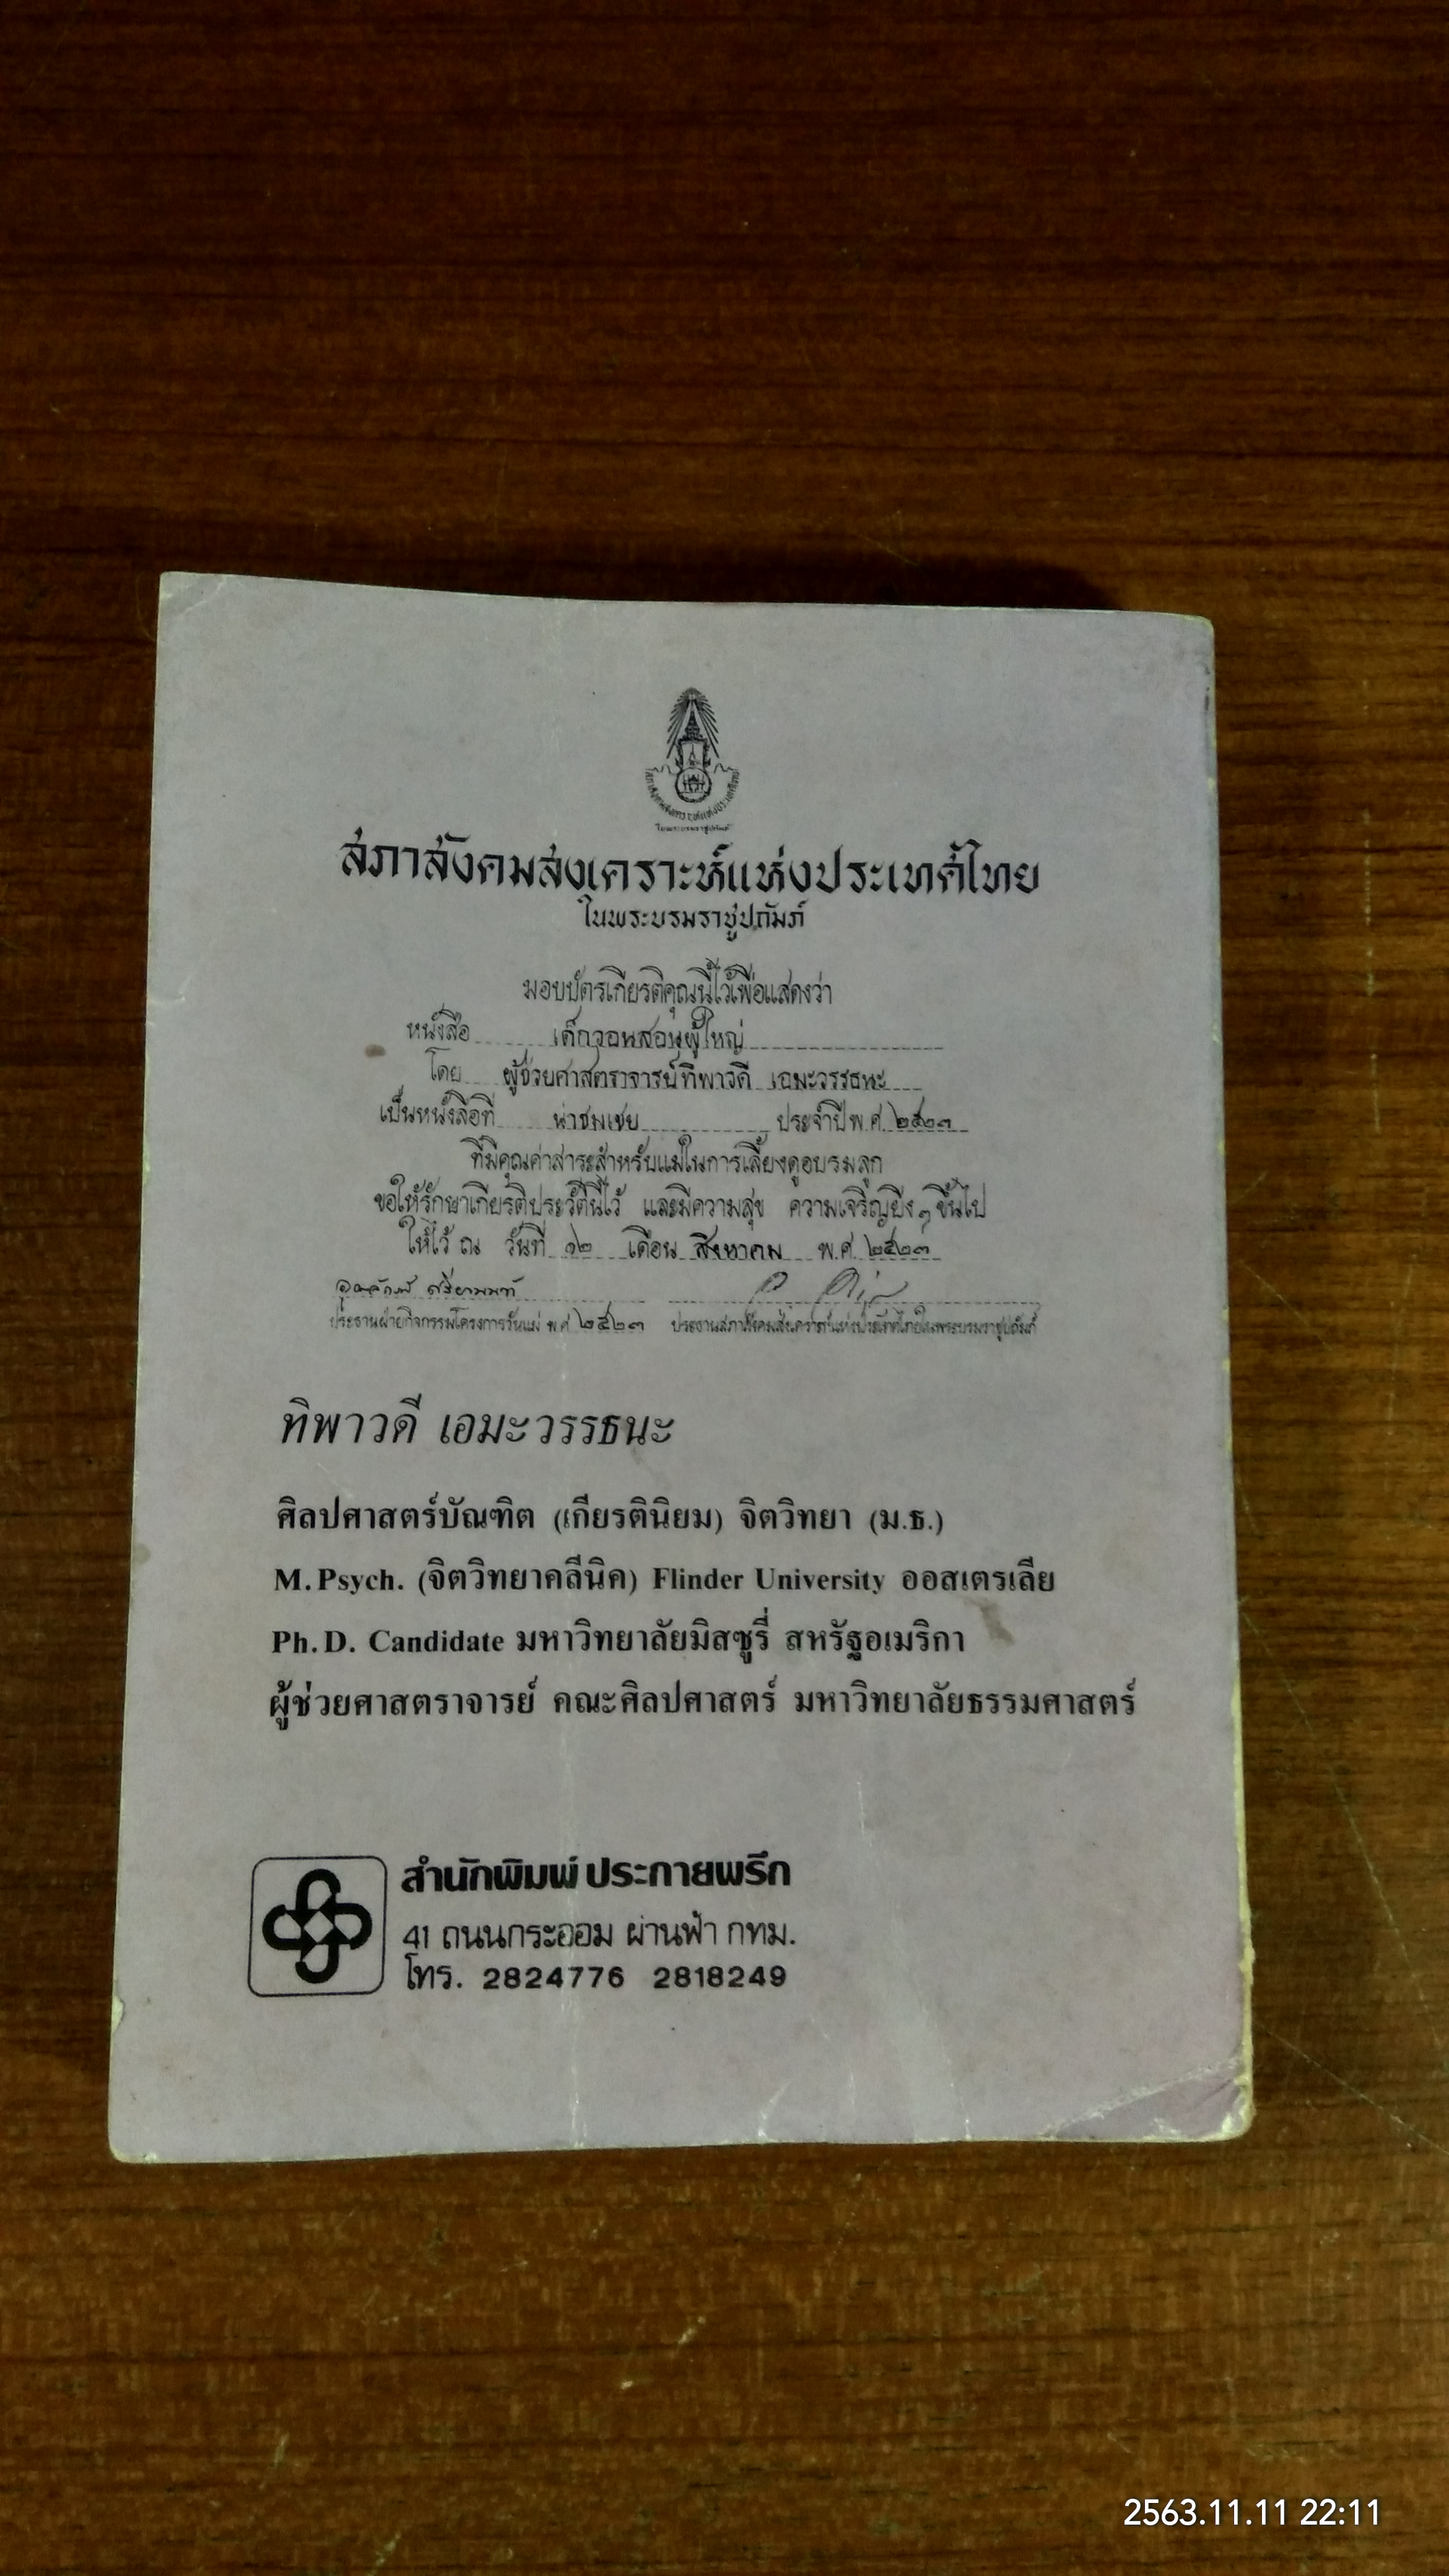 สภาสังคมสงเคราะห์แห่งประเทศไทย
ในพระบรมราชูปถัมภ์
มอบบัตรเกียรติคุณนี้ไว้เพื่อแสดงว่า
หนังสือ เด็กวอนสอนผู้ใหญ่
โดย ผู้ช่วยศาสตราจารย์ทิพาวดี เอมะวรรธนะ
เป็นหนังสือที่ น่าชมเชย ประจำปี พ.ศ. ๒๕๒๓
ที่มีคุณค่าสาระสำหรับแม่ในการเลี้ยงดูอบรมลูก
ขอให้รักษาเกียรติประวัตินี้ไว้ และมีความสุข ความเจริญยิ่งๆ ขึ้นไป
ให้ไว้ ณ วันที่ ๑๒ เดือน สิงหาคม พ.ศ. ๒๕๒๓
ประธานฝ่ายกิจกรรมโครงการวันแม่ พ.ศ. ๒๕๒๓ ประธานสภาสังคมสงเคราะห์แห่งประเทศไทยในพระบรมราชูปถัมภ์
ทิพาวดี เอมะวรรธนะ
ศิลปศาสตร์บัณฑิต (เกียรตินิยม) จิตวิทยา (ม.ธ.)
M.Psych. (จิตวิทยาคลีนิค) Flinder University ออสเตรเลีย
Ph.D. Candidate มหาวิทยาลัยมิสซูรี่ สหรัฐอเมริกา
ผู้ช่วยศาสตราจารย์ คณะศิลปศาสตร์ มหาวิทยาลัยธรรมศาสตร์
สำนักพิมพ์ ประกายพรึก
41 ถนนกระออม ผ่านฟ้า กทม.
โทร. 2824776 2818249
2563.11.11 22:11